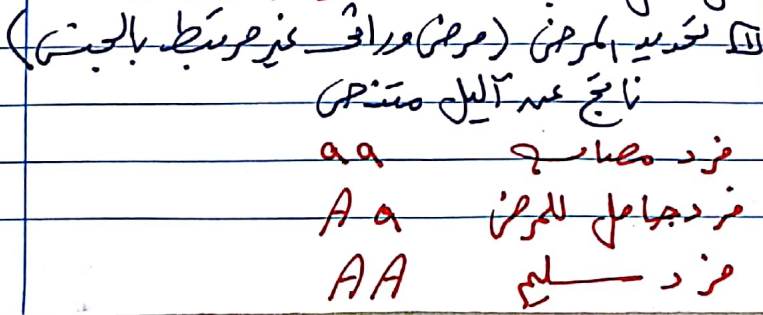 1 تحديد المرض (مرض وراثي غير مرتبط بالجنس)
ناتج عن آليل متنحي
فرد مصاب aa
فرد حامل للمرض Aa
فرد سليم AA